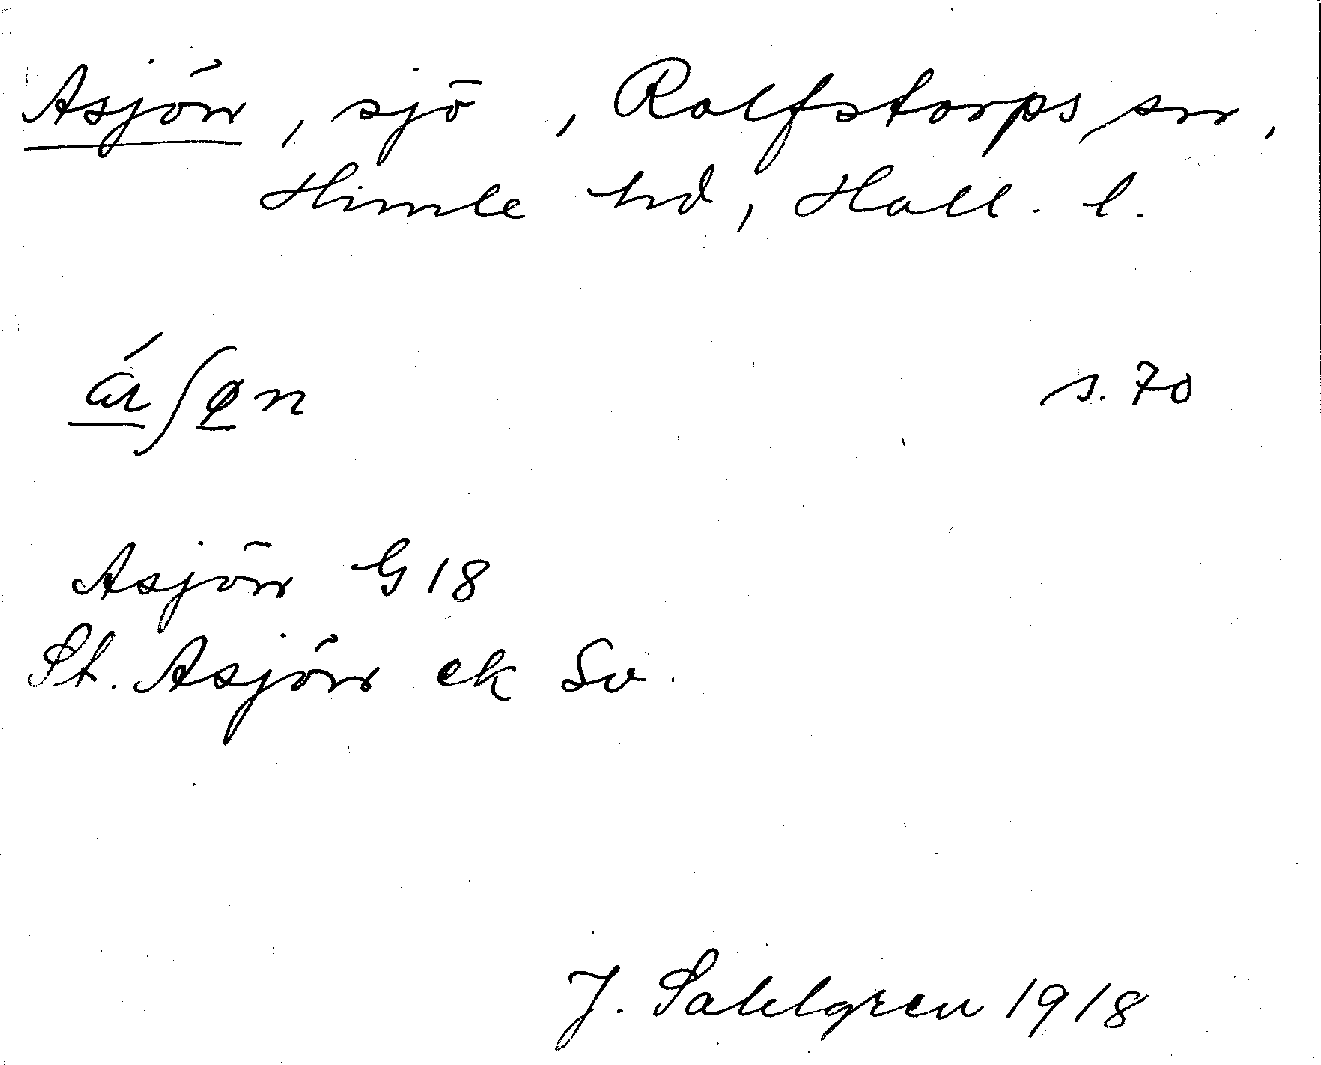 Asjön, sjö, Rolfstorps sn,
Himle hd, Hall. l.
s. 70
Asjön G 18
St. Asjön ek Sv.
J. Sahlgren 1918